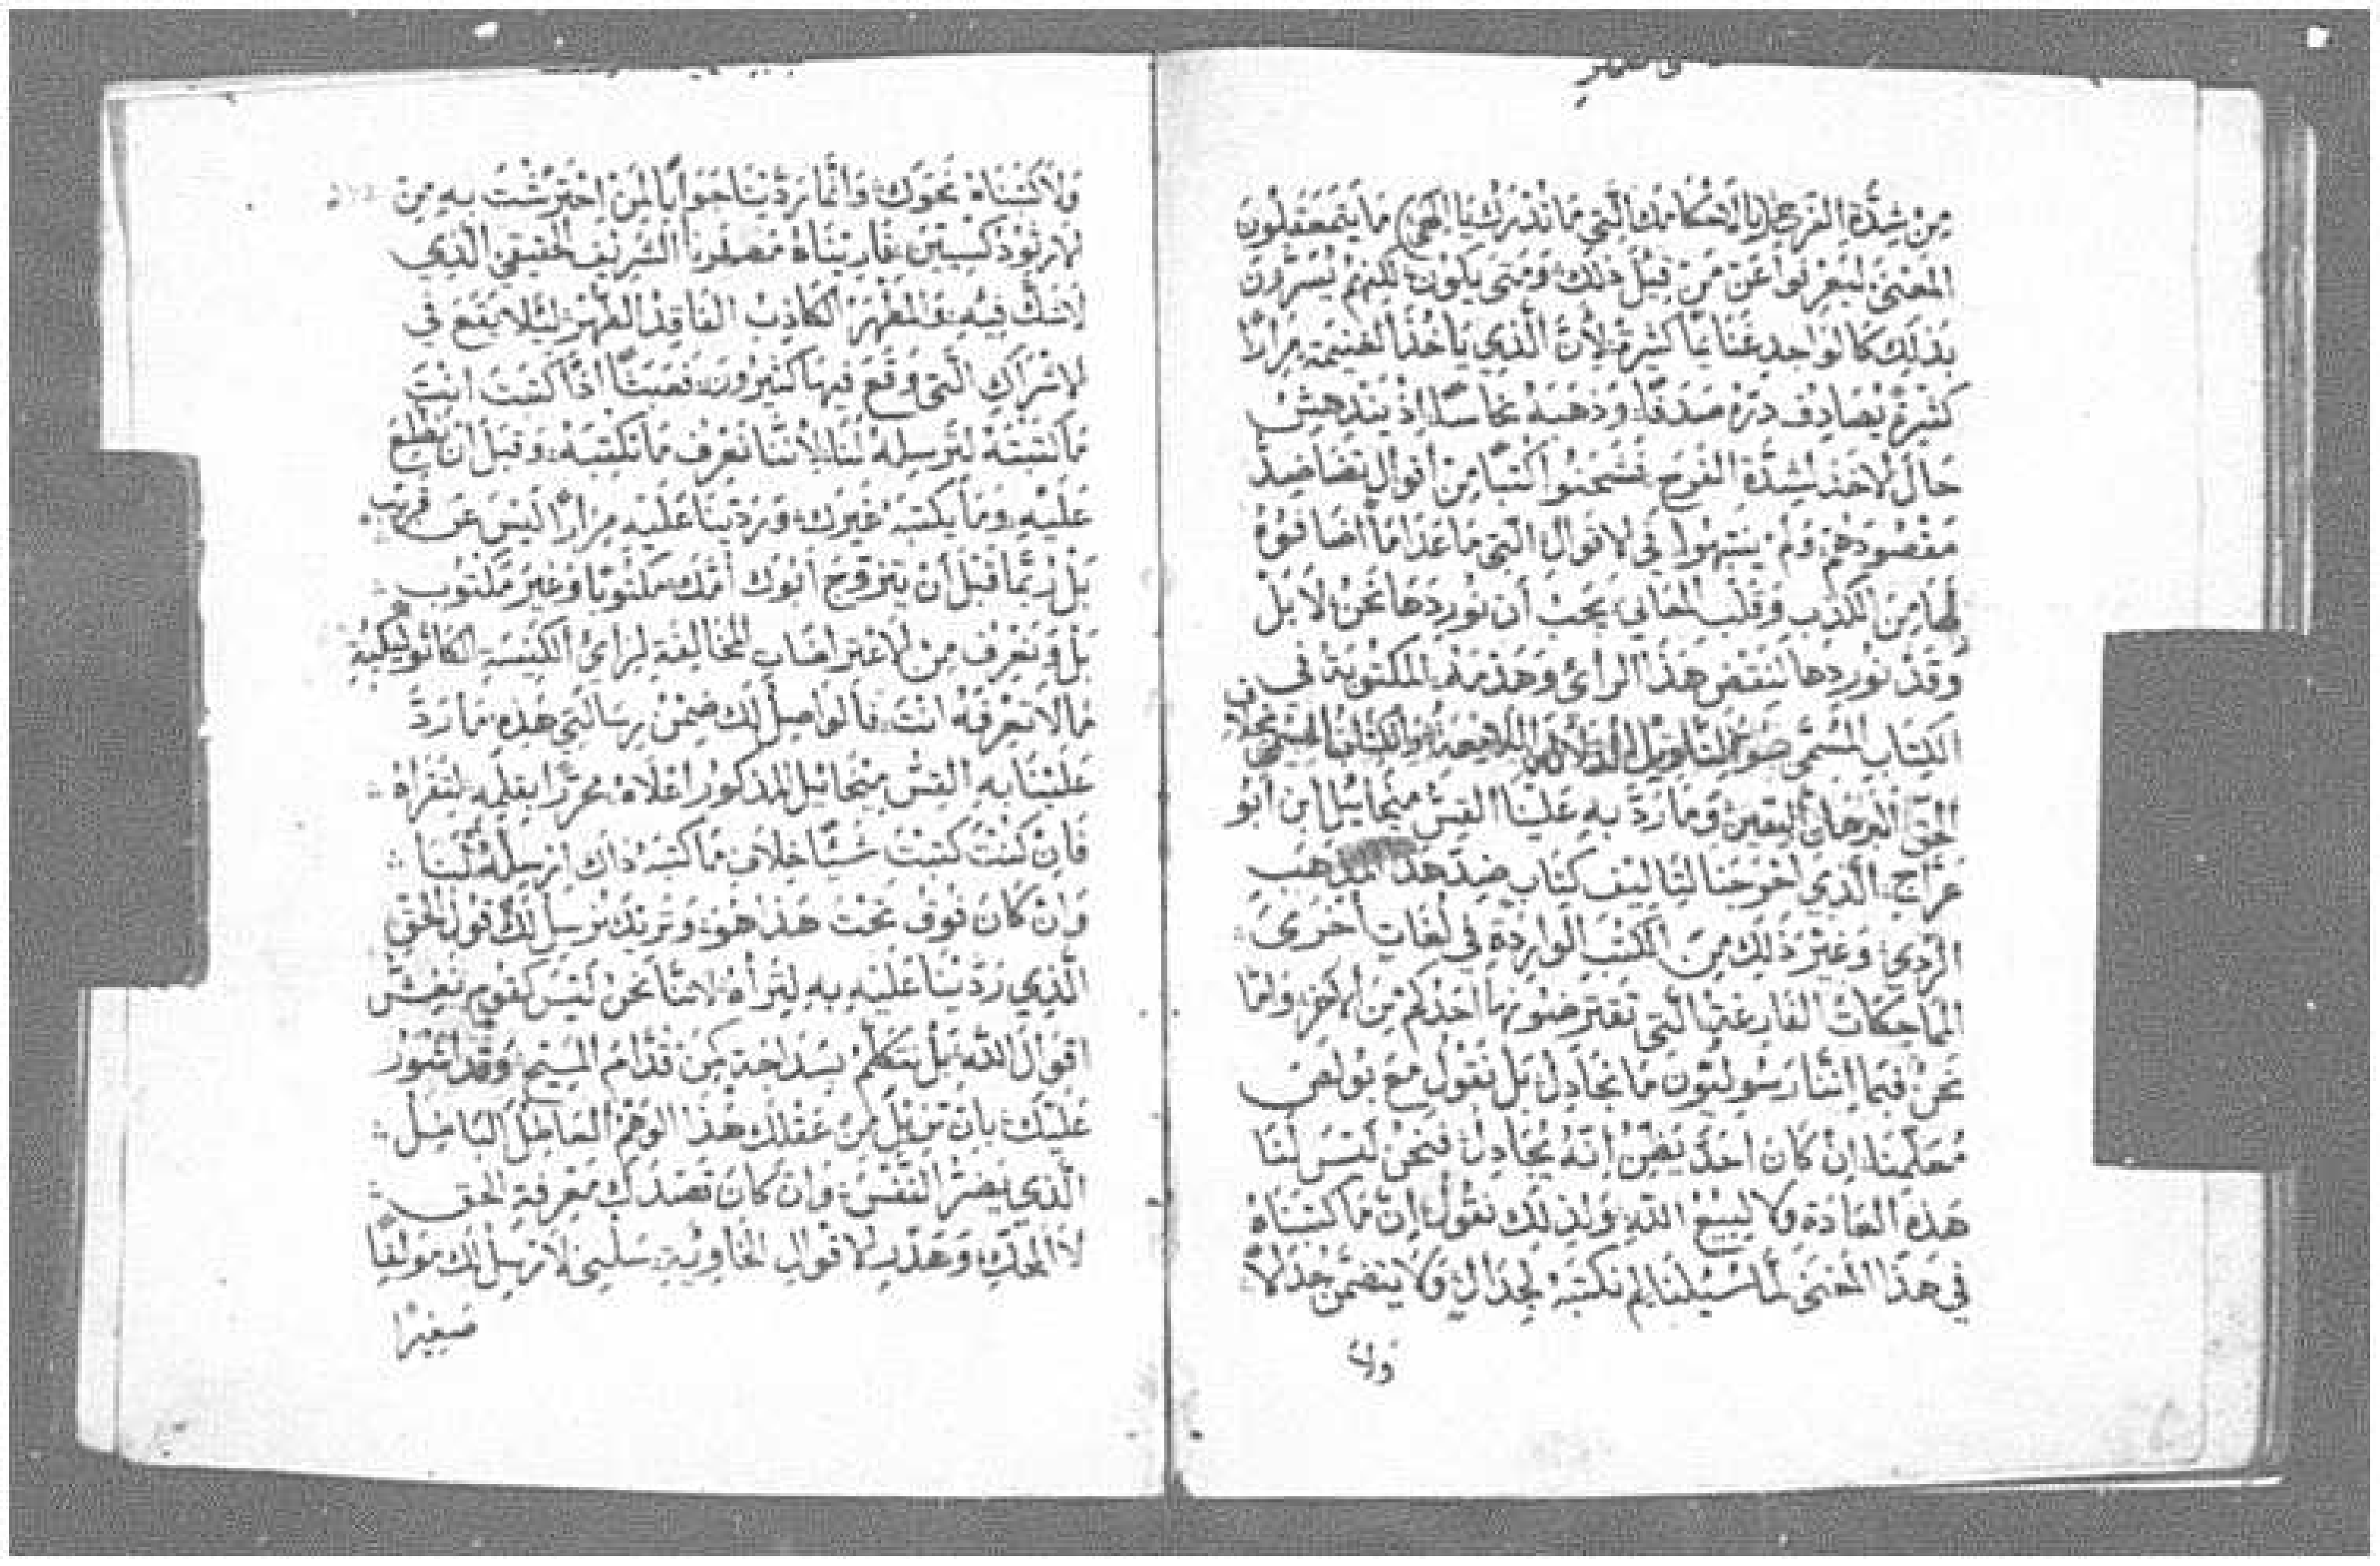 من شدة الفرح بالاحكامك التي ما تدرك يا الهي ما يتمعقلون
المعنى ليعرفوا عن من قيل ذلك ومتى يكون لكنهم يسرون
بذلك كالواجد غنايما كثيرة لأن الذي يأخذ الغنيمة مرارًا
كثيرة يصادف دره صدفًا وذهبه نحاسًا إذ يندهش
حال الاخذ لشدة الفرح فشحنوا كتبًا من أقوال تضاضد
مقصودهم ولم ينتبهوا في لاقوال التي ما عدا ما أضافوه
لها من الكذب وقلب المعاني يجب أن نوردها نحن لا بل
وقد نوردها لنقض هذا الرأى وهدمه المكتوبة في
الكتاب المسمى
الحق البرهان اليقين وما رد به علينا القس ميخائيل ابن أبو
عراج الذي أحوجنا لتأليف كتاب ضد هذا المذهب
الردي وغير ذلك من الكتب الواردة في لغات أخرى
المماحكات الفارغة التي تقترضونها أحدكم من الآخر ولما
نحن فبما إننا رسوليون ما نجادل بل نقول مع بولص
معلمنا إن كان أحد يظن إنه يجادل فنحن ليس لنا
هذه العادة ولا لبيع الله ولذلك نقول إن ما كتبناه
في هذا المعنى لما سئلنا لم نكتبه لجدال ولا يتضمن جدلاً
ولا
ولا كتبناه نحوك وانما ردينا جوابًا لمن احترشت به من
لارثوذكسيين فاريناه مصفرنا الشريف الحقيقي الذي
لاشك فيه والمطهر الكاذب الفاقد الطهر لئلا يقع في
لاشراك التي وقع فيها كثيرون فعبثًا اذًا كتبت انت
ما كتبته لترسله لنا لأننا نعرف ما تكتبه وقبل أن نطلع
عليه وما يكتبه غيرك وردينا عليه مرارًا ليس عن قريب
بل ربما قبل أن يتزوج أبوك أمك مكتوبًا وغير مكتوب
بل ونعرف من لاعتراضات المخالفة لرأى الكنيسة الكاثوليكية
ما لا تعرفه انت فالواصل لك ضمن رسالتي هذه ما رد
علينا به القس ميخائيل المذكور اعلاه محررًا بقلمه لتقراه
فان كنت كتبت شيًا خلاف ما كتبه ذاك ارسله لنا
وان كان فوف تحت هذا هو وتريد نرسل لك قول الحق
الذي ردينا عليه به لتراه لاننا نحن ليس كقوم نغش
اقوال الله بل نتكلم بسداجة من قدام المسيح وقد نشور
عليك بان تزيل من عقلك هذا الوهم العاطل الباطل
الذي يضر النفس وان كان قصدك معرفة الحق
لا المحك وهدر لاقوال الخاوية سلني لارسل لك مولفًا
صغيرًا